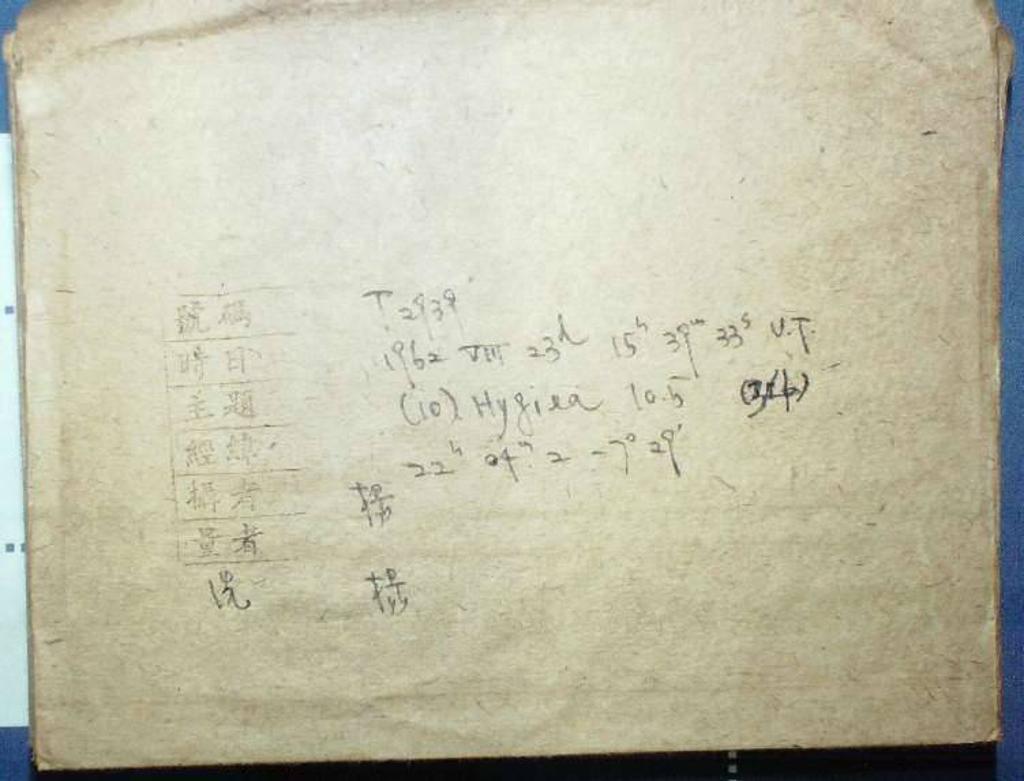 號碼 T 2939
時日 1962 VIII 23d 15h 39m 33s U.T.
主題 (10) Hygiea 10.5
經緯 22h 04m.2 -7° 29'
攝者 楊
量者
洗 楊